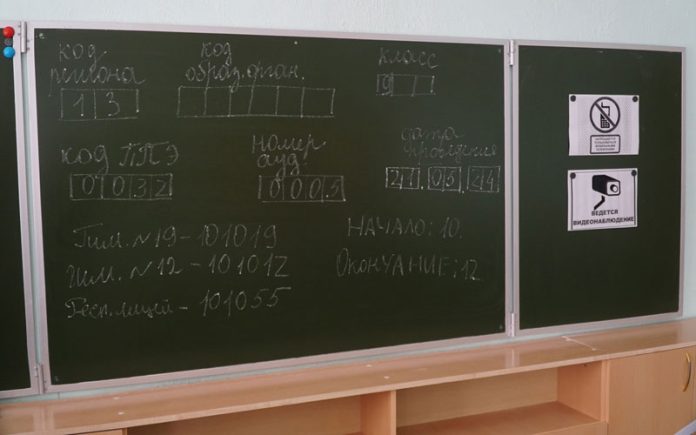 код региона
1 3
код образ. орган.
класс
9
код ППЭ
0 0 3 2
номер ауд
0 0 0 5
дата проведения
27.05.24
Гим. №19 - 101019
Гим. №12 - 101012
Респ. лицей - 101055
НАЧАЛО: 10.
ОКОНЧАНИЕ: 12
ВЕДЕТСЯ
ВИДЕОНАБЛЮДЕНИЕ